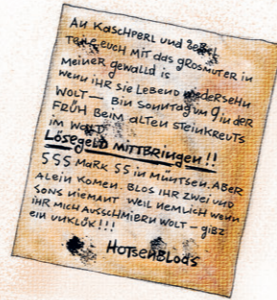 An Kaschperl und Sepl
Teile euch mit das Grosmuter in
meiner gewalld is
wenn ihr sie Lebend wiedersehn
wolt — bin Sonntag um 9 in der
früh beim alten steinkreuts
im Wald
Lösegeld mittbringen!!
555 Mark 55 in Müntsen. Aber
alein komen. Blos ihr zwei und
sons niemant weil nemlich wenn
ihr mich ausschmiern wolt — gibz
ein unklük!!!
Hotsenblods